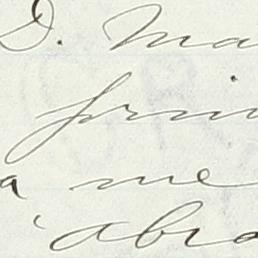 D. Ma
prin
a me
abra